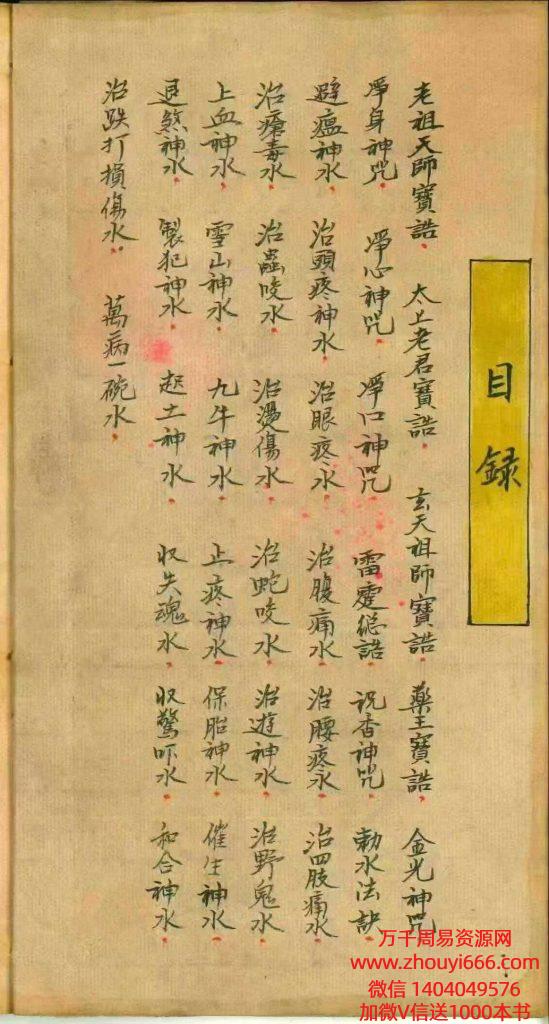 目録
老祖天師寶誥. 太上老君寶誥. 玄天祖師寶誥. 藥王寶誥. 金光神咒
淨身神咒. 淨心神咒. 淨口神咒 雷霆総誥 祝香神咒. 勅水法訣.
避瘟神水. 治頭疼神水. 治眼疼水. 治腹痛水 治腰疼水. 治四肢痛水
治瘡毒水 治蟲咬水. 治燙傷水 治蛇咬水 治遊神水. 治野鬼水
上血神水. 雪山神水. 九牛神水. 止疼神水. 保胎神水. 催生神水
退煞神水. 製犯神水. 起土神水. 収失魂水. 収驚吓水. 和合神水.
治跌打損傷水. 萬病一碗水.
万千周易资源网
www.zhouyi666.com
微信 1404049576
加微V信送1000本书